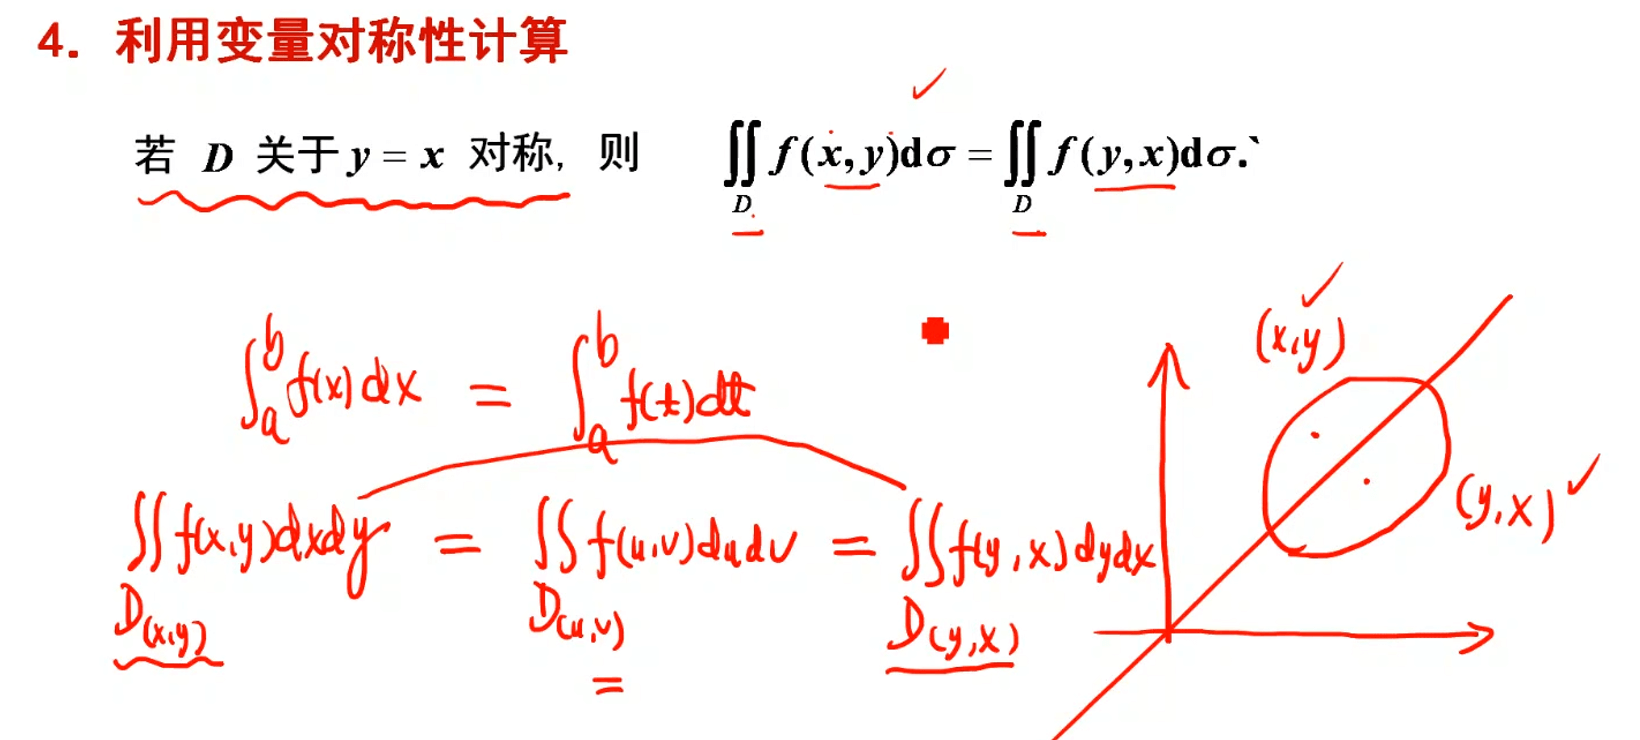 4. 利用变量对称性计算
若 D 关于 y = x 对称, 则 ∬_D f(x,y)dσ = ∬_D f(y,x)dσ.`
∫_a^b f(x)dx = ∫_a^b f(t)dt
∬_{D(x,y)} f(x,y)dxdy = ∬_{D(u,v)} f(u,v)dudv = ∬_{D(y,x)} f(y,x)dydx
=
(x,y)
(y,x)